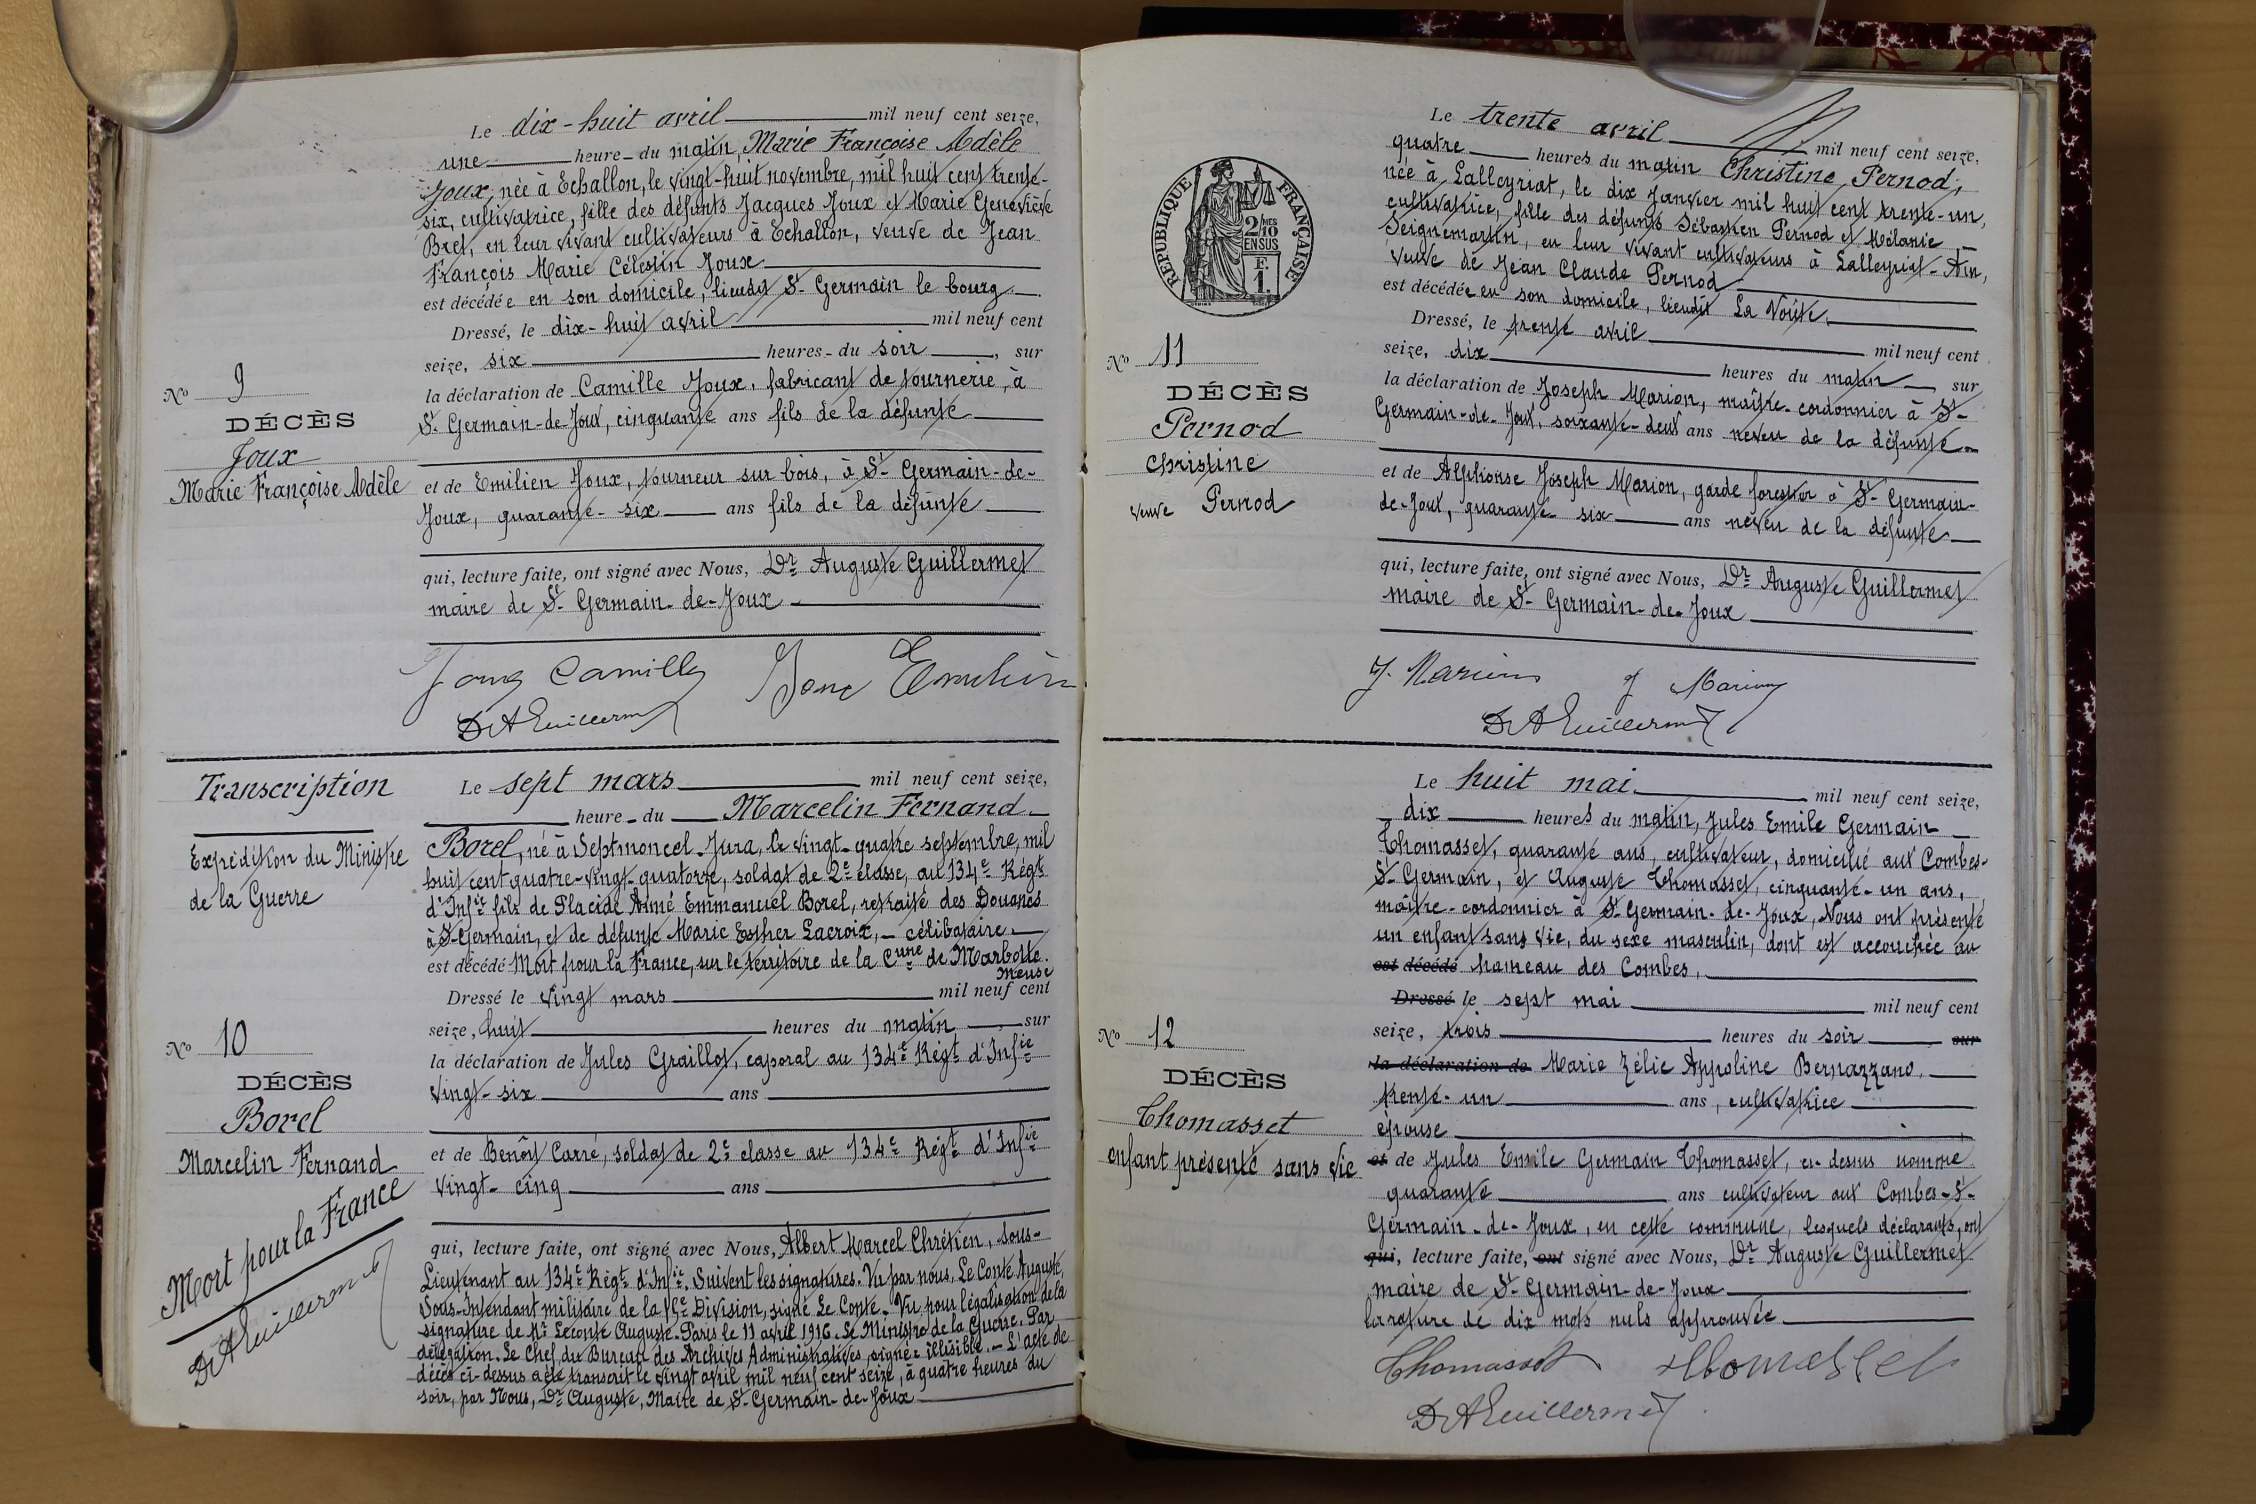 Le dix-huit avril mil neuf cent seize,
une heure du matin, Marie Françoise Adèle
Joux, née à Echallon, le vingt-huit novembre, mil huit cent trente-
six, cultivatrice, fille des défunts Jacques Joux et Marie Geneviève
Bret, en leur vivant cultivateurs à Echallon, veuve de Jean
François Marie Célestin Joux
est décédée en son domicile, lieudit St Germain le bourg.
Dressé, le dix-huit avril mil neuf cent
seize, six heures du soir, sur
la déclaration de Camille Joux, fabricant de tournerie, à
St Germain-de-Joux, cinquante ans fils de la défunte
et de Emilien Joux, tourneur sur bois, à St Germain-de-
Joux, quarante-six ans fils de la défunte
qui, lecture faite, ont signé avec Nous, Dr Auguste Guillermet
maire de St Germain-de-Joux
No 9
DÉCÈS
Joux
Marie Françoise Adèle
Joux Camille Joux Emilien
Dr A Guillermet
Transcription
Expédition du Ministre
de la Guerre
No 10
DÉCÈS
Borel
Marcelin Fernand
Mort pour la France
Dr A Guillermet
Le sept mars mil neuf cent seize,
heure du Marcelin Fernand
Borel, né à Septmoncel Jura, le vingt-quatre septembre, mil
huit cent quatre-vingt-quatorze, soldat de 2e classe, au 134e Régt
d'Infie fils de Placide Aimé Emmanuel Borel, retraité des Douanes
à St Germain, et de défunte Marie Esther Lacroix, célibataire
est décédé Mort pour la France, sur le territoire de la Cune de Marbotte.
Meuse
Dressé le vingt mars mil neuf cent
seize, huit heures du matin sur
la déclaration de Jules Graillot, caporal au 134e Régt d'Infie
vingt-six ans
et de Benôit Carré, soldat de 2e classe au 134e Régt d'Infie
vingt-cinq ans
qui, lecture faite, ont signé avec Nous, Albert Marcel Chrétien, sous-
Lieutenant au 134e Régt d'Infie. Suivent les signatures. Vu par nous, Le Conte Auguste,
Sous-Intendant militaire de la 15e Division, signé Le Conte. Vu pour légalisation de la
signature de Mr Leconte Auguste. Paris le 11 avril 1916. Le Ministre de la Guerre. Par
délégation. Le Chef du Bureau des Archives Administratives, signé: illisible. L'acte de
décès ci-dessus a été transcrit le vingt avril mil neuf cent seize, à quatre heures du
soir, par Nous, Dr Auguste, Maire de St Germain-de-Joux
RÉPUBLIQUE FRANÇAISE
2/10 EN SUS
F. 1.
Le trente avril mil neuf cent seize,
quatre heures du matin Christine Pernod,
née à Lalleyriat, le dix Janvier mil huit cent trente-un,
cultivatrice, fille des défunts Sébastien Pernod et Mélanie
Seignemartin, en leur vivant cultivateurs à Lalleyriat-Ain,
veuve de Jean Claude Pernod
est décédée en son domicile, lieudit La Voûte.
Dressé, le trente avril mil neuf cent
seize, dix heures du matin, sur
la déclaration de Joseph Marion, maître-cordonnier à St-
Germain-de-Joux, soixante-deux ans neveu de la défunte
et de Alphonse Joseph Marion, garde forestier à St Germain-
de-Joux, quarante-six ans neveu de la défunte
qui, lecture faite, ont signé avec Nous, Dr Auguste Guillermet
maire de St Germain-de-Joux
No 11
DÉCÈS
Pernod
Christine
veuve Pernod
J. Marion J Marion
Dr A Guillermet
No 12
DÉCÈS
Thomasset
enfant présenté sans vie
Le huit mai mil neuf cent seize,
dix heures du matin, Jules Emile Germain
Thomasset, quarante ans, cultivateur, domicilié aux Combes-
St Germain, et Auguste Thomasset, cinquante-un ans,
maître-cordonnier à St Germain-de-Joux, Nous ont présenté
un enfant sans vie, du sexe masculin, dont est accouchée au
est décédé hameau des Combes,
Dressé le sept mai mil neuf cent
seize, trois heures du soir sur
la déclaration de Marie Zélie Appoline Bernazzano,
trente-un ans, cultivatrice
épouse
et de Jules Emile Germain Thomasset, ci-dessus nommé
quarante ans cultivateur aux Combes-St-
Germain-de-Joux, en cette commune, lesquels déclarants, ont
qui, lecture faite, ont signé avec Nous, Dr Auguste Guillermet
maire de St Germain-de-Joux
la rature de dix mots nuls approuvée
Thomasset Thomasset
Dr A Guillermet